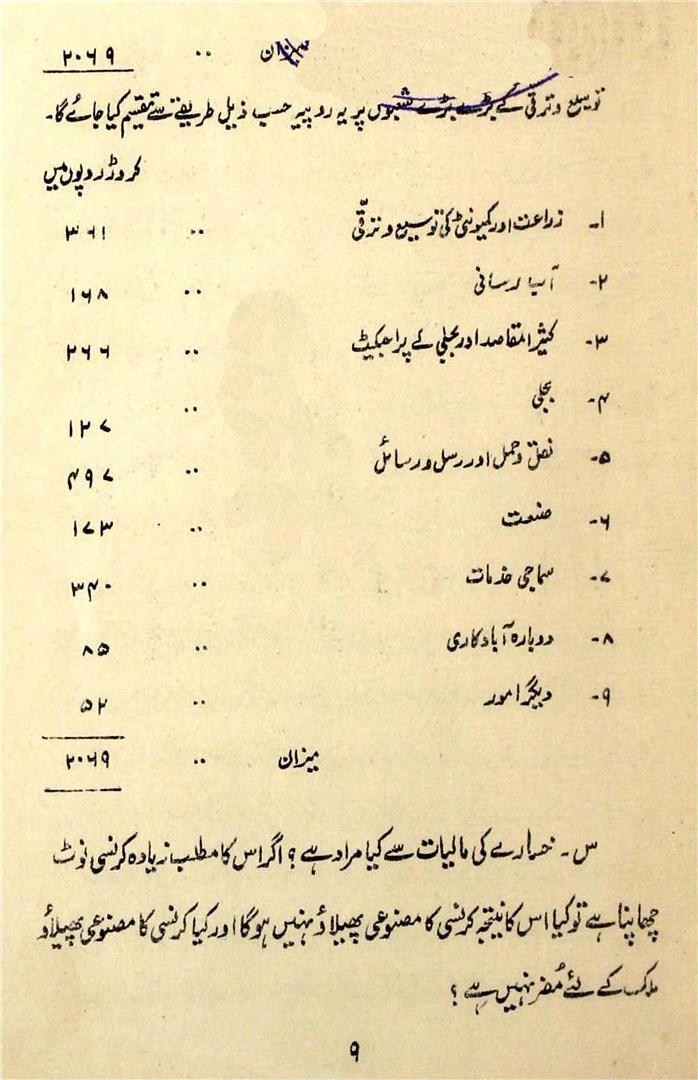 میزان .. ۲۰۶۹
توسیع و ترقی کے بڑے بڑے شعبوں پر یہ روپیہ حسب ذیل طریقے سے تقسیم کیا جائے گا۔
کروڑ روپوں میں
۱۔ زراعت اور کمیونٹی کی توسیع و ترقی .. ۳۶۱
۲۔ آبپا رسانی .. ۱۶۸
۳۔ کثیر المقاصد اور بجلی کے پراجیکٹ .. ۲۶۶
۴۔ بجلی .. ۱۲۷
۵۔ نقل و حمل اور رسل و رسائل .. ۴۹۷
۶۔ صنعت .. ۱۷۳
۷۔ سماجی خدمات .. ۳۴۰
۸۔ دوبارہ آبادکاری .. ۸۵
۹۔ دیگر امور .. ۵۲
میزان .. ۲۰۶۹
س۔ خسارے کی مالیات سے کیا مراد ہے؟ اگر اس کا مطلب زیادہ کرنسی نوٹ
چھاپنا ہے تو کیا اس کا نتیجہ کرنسی کا مصنوعی پھیلاؤ نہیں ہوگا اور کیا کرنسی کا مصنوعی پھیلاؤ
ملک کے لئے مُضر نہیں ہے؟
۹